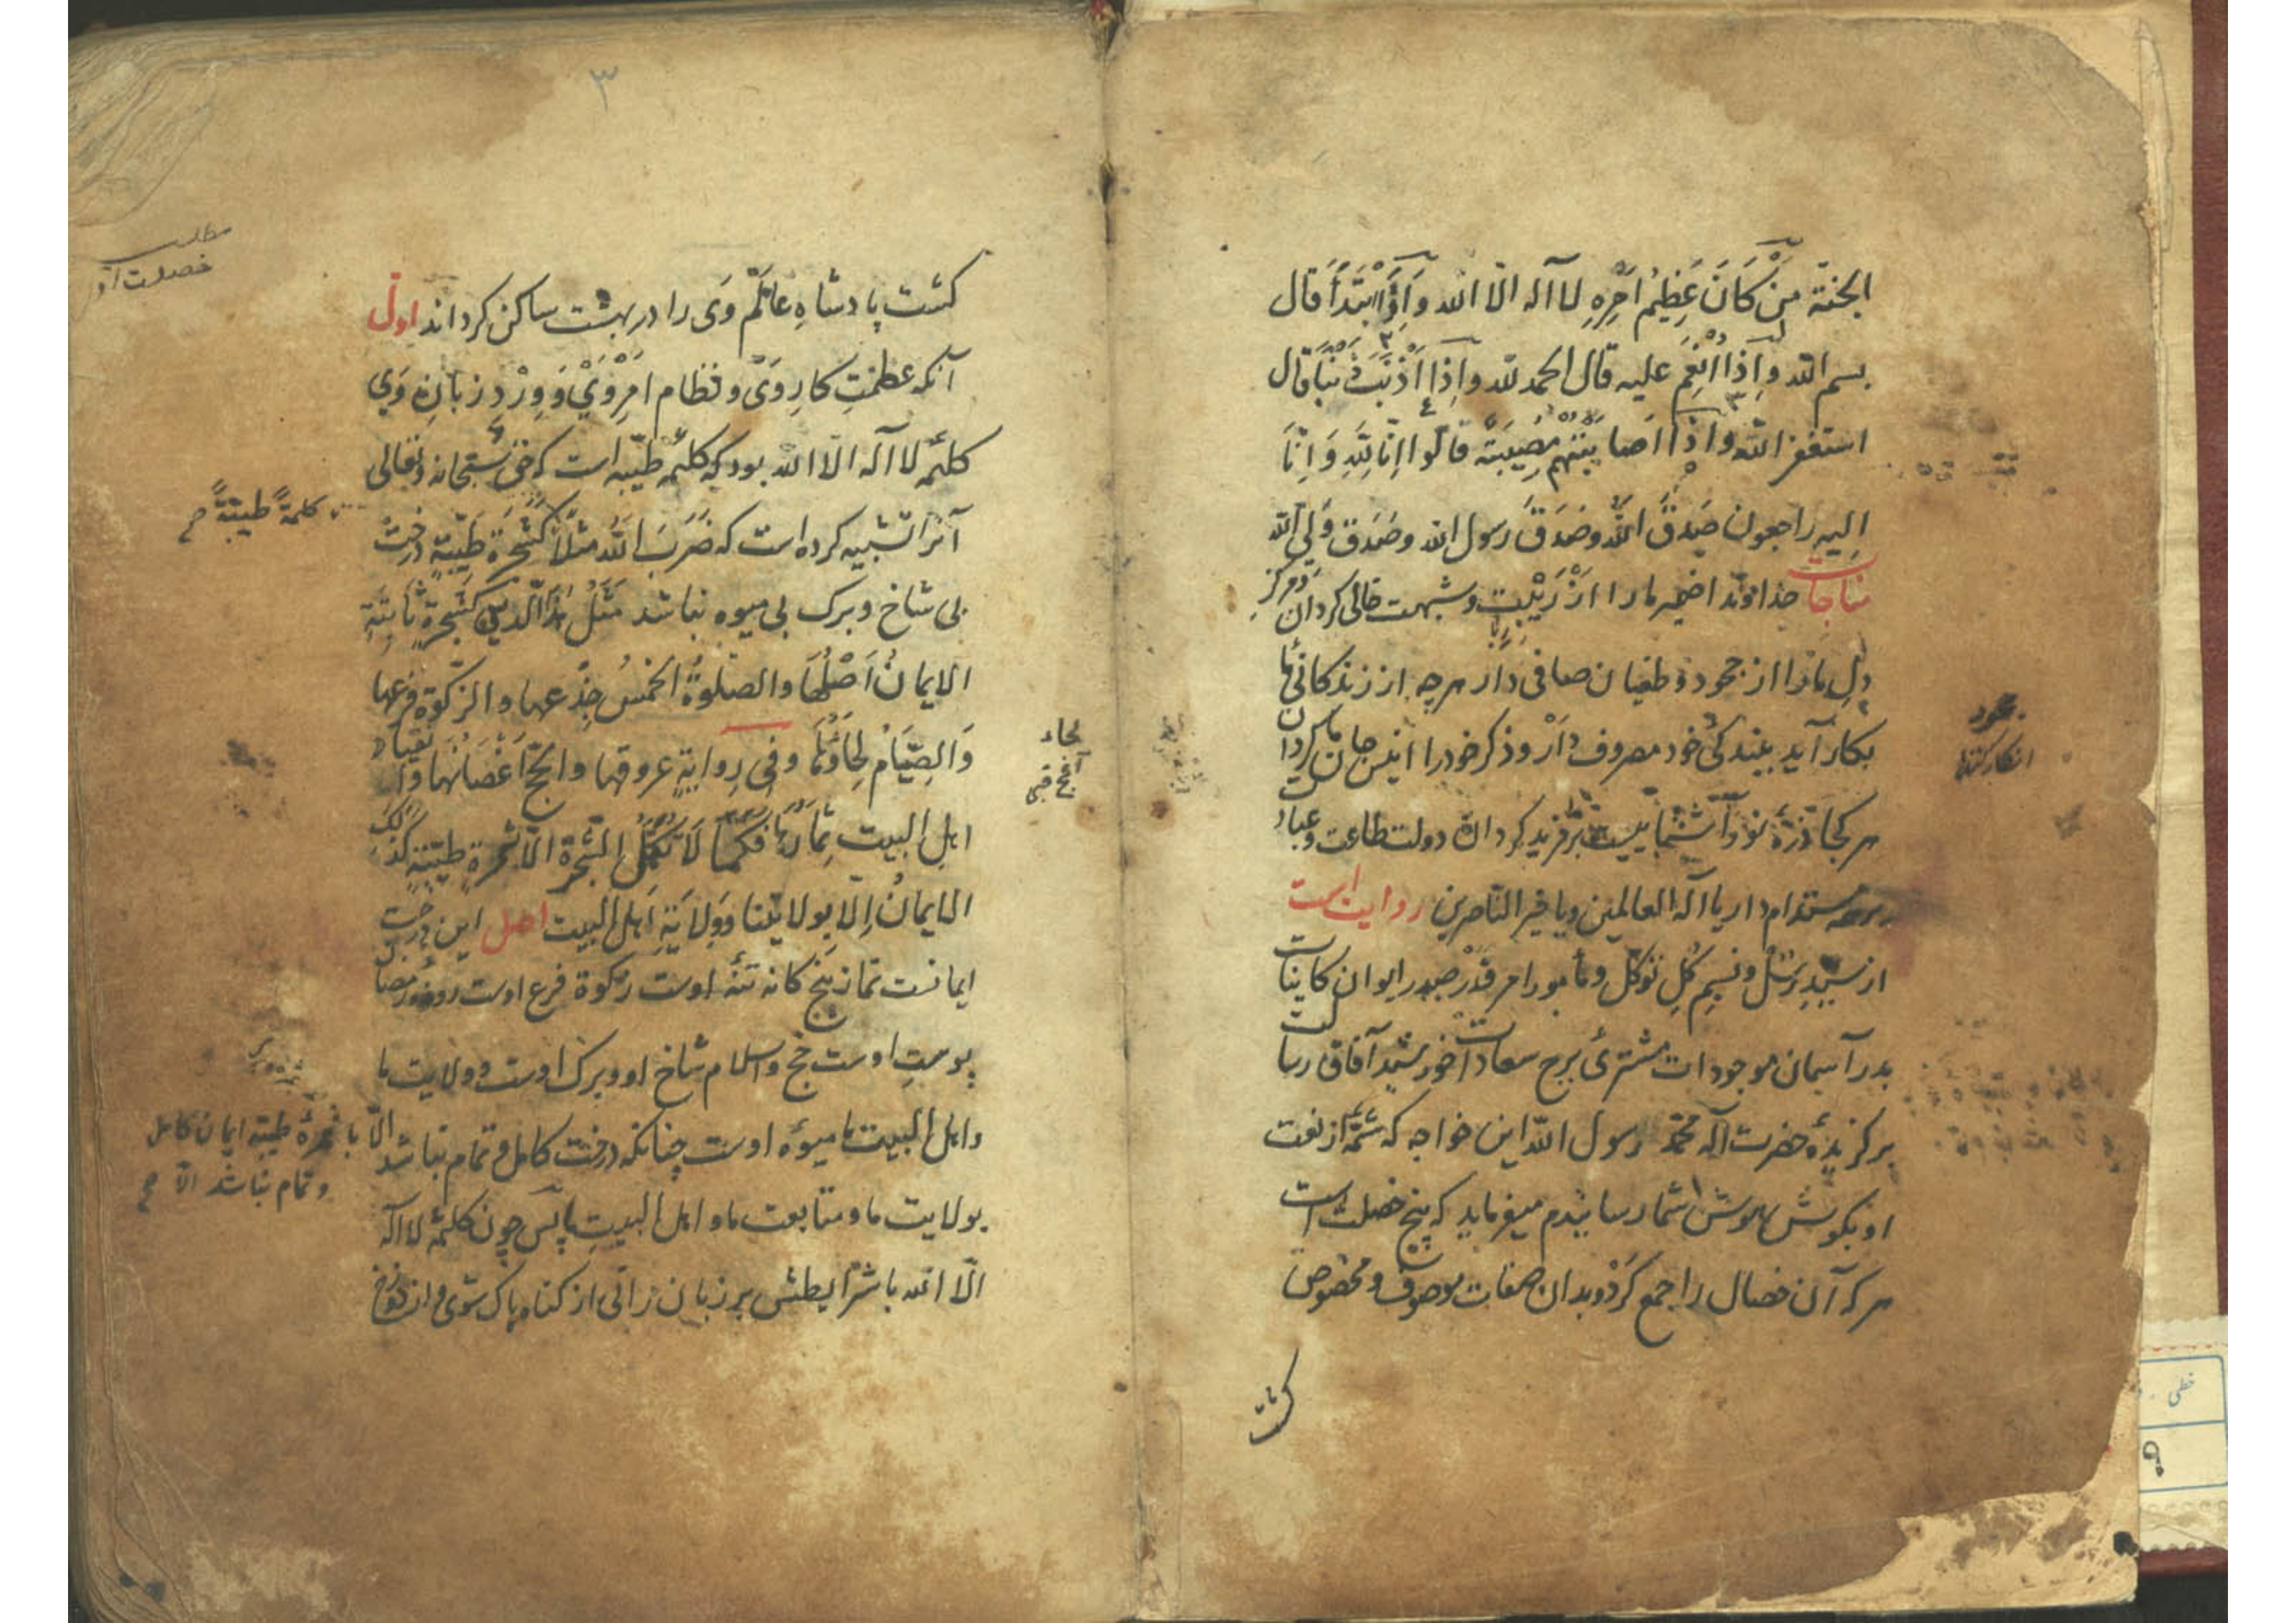 الجنّة مَنْ كَانَ عَظِيمُ اَمْرِهِ لا آله الّا الله وَاِذَا ابْتَدَأَ قال
بسم الله وَاِذَا اُنْعِمَ عليه قال الحمد لله واِذَا اَذْنَبَ ذَنْبًا قال
استغفر الله واِذَا اَصَابَتْهُمْ مُصِيبَةٌ قالوا اِنَّا لِلّهِ وَ اِنَّا
اليه راجعون صَدَقَ الله وصَدَقَ رسول الله وصَدَق وَلِي الله
مناجات خداوندا ضمیر ما را از رَیْبِت و شبهت خالی کردان و مرکز
دلِ ما را از جحود و طغیان صافی دار هرچه از زندکانی ما
بکار آید ببندکی خود مصروف دار و ذکر خود را انیس جان ما کردان
هر کجا ذرّهٔ نور آشنائیست برفزید کردان دولت طاعت و عبادت
بر همه مستدام دار یا آله العالمین ویا خیر النّاصرین روایت است
از سیّدِ رُسُل و نسیمِ کُلِ توکّل و مأمور امر قدر صدر ایوان کاینات
بدر آسمان موجودات مشتریٔ برج سعادت خورشید آفاق رسالت
برکزیدهٔ حضرت آله محمّد رسول الله این خواجه که شمّهٔ از نعت
او بکوش هوش شما رسانیدم میفرماید که پنج خصلت است
هر که آن خصال را جمع کرد و بدان صفات موصوف و مخصوص
کشت
جحود
انکار کننده
۳
کشت پادشاهِ عالَم وَی را در بهشت ساکن کرداند اول
آنکه عظمتِ کارِ وَی و نظام امرِ وَیْ وَ وِرْدِ زبانِ وَی
کلمهٔ لا آله الّا الله بود که کلمهٔ طیّبه است که حق سبحانه وتعالی
آنرا تشبیه کرده است که ضَرَبَ اللهُ مثلًا کَشَجَرَةٍ طَیِّبَةٍ درخت
بی شاخ و برک بی میوه نباشد مَثَلُ هذَا الّدین کَشَجَرةٍ ثابِتَةٍ
الایمانُ اَصْلُهَا والصلوةُ الخمسُ جِذْعها والزکوة فرعها
وَالصِّیَامُ لِحَاؤُهَا وفی رِوایةٍ عروقها والحجّ اَغْصَانُهَا و
اهل البیت ثِمَارُهَا فَکَمَا لَا تَکْمُلُ الشّجرة الّا بثمرةٍ طیّبةٍ کذلک
الایمانُ اِلّا بولایتنا وَوَلَایَةِ اهل البیت اصل این درخت
ایمانست نماز پنج کانه تنهٔ اوست زکوة فرع اوست روزهٔ رمضان
پوستِ اوست حج و اسلام شاخ او و برک اوست و ولایت ما
و اهل البیت ما میوهٔ اوست چنانکه درخت کامل و تمام نباشد الّا
بولایت ما و متابعت ما و اهل البیتِ ما پس چون کلمهٔ لا آله
الّا الله با شرایطش بر زبان رانی از کناه پاک شوی و از دوزخ
مطلب
خصلت اول
کلمةً طیبّةً صح
لحاء
با ثمرهٔ طیّبه ایمان کامل
و تمام نباشد الّا صح
خطی